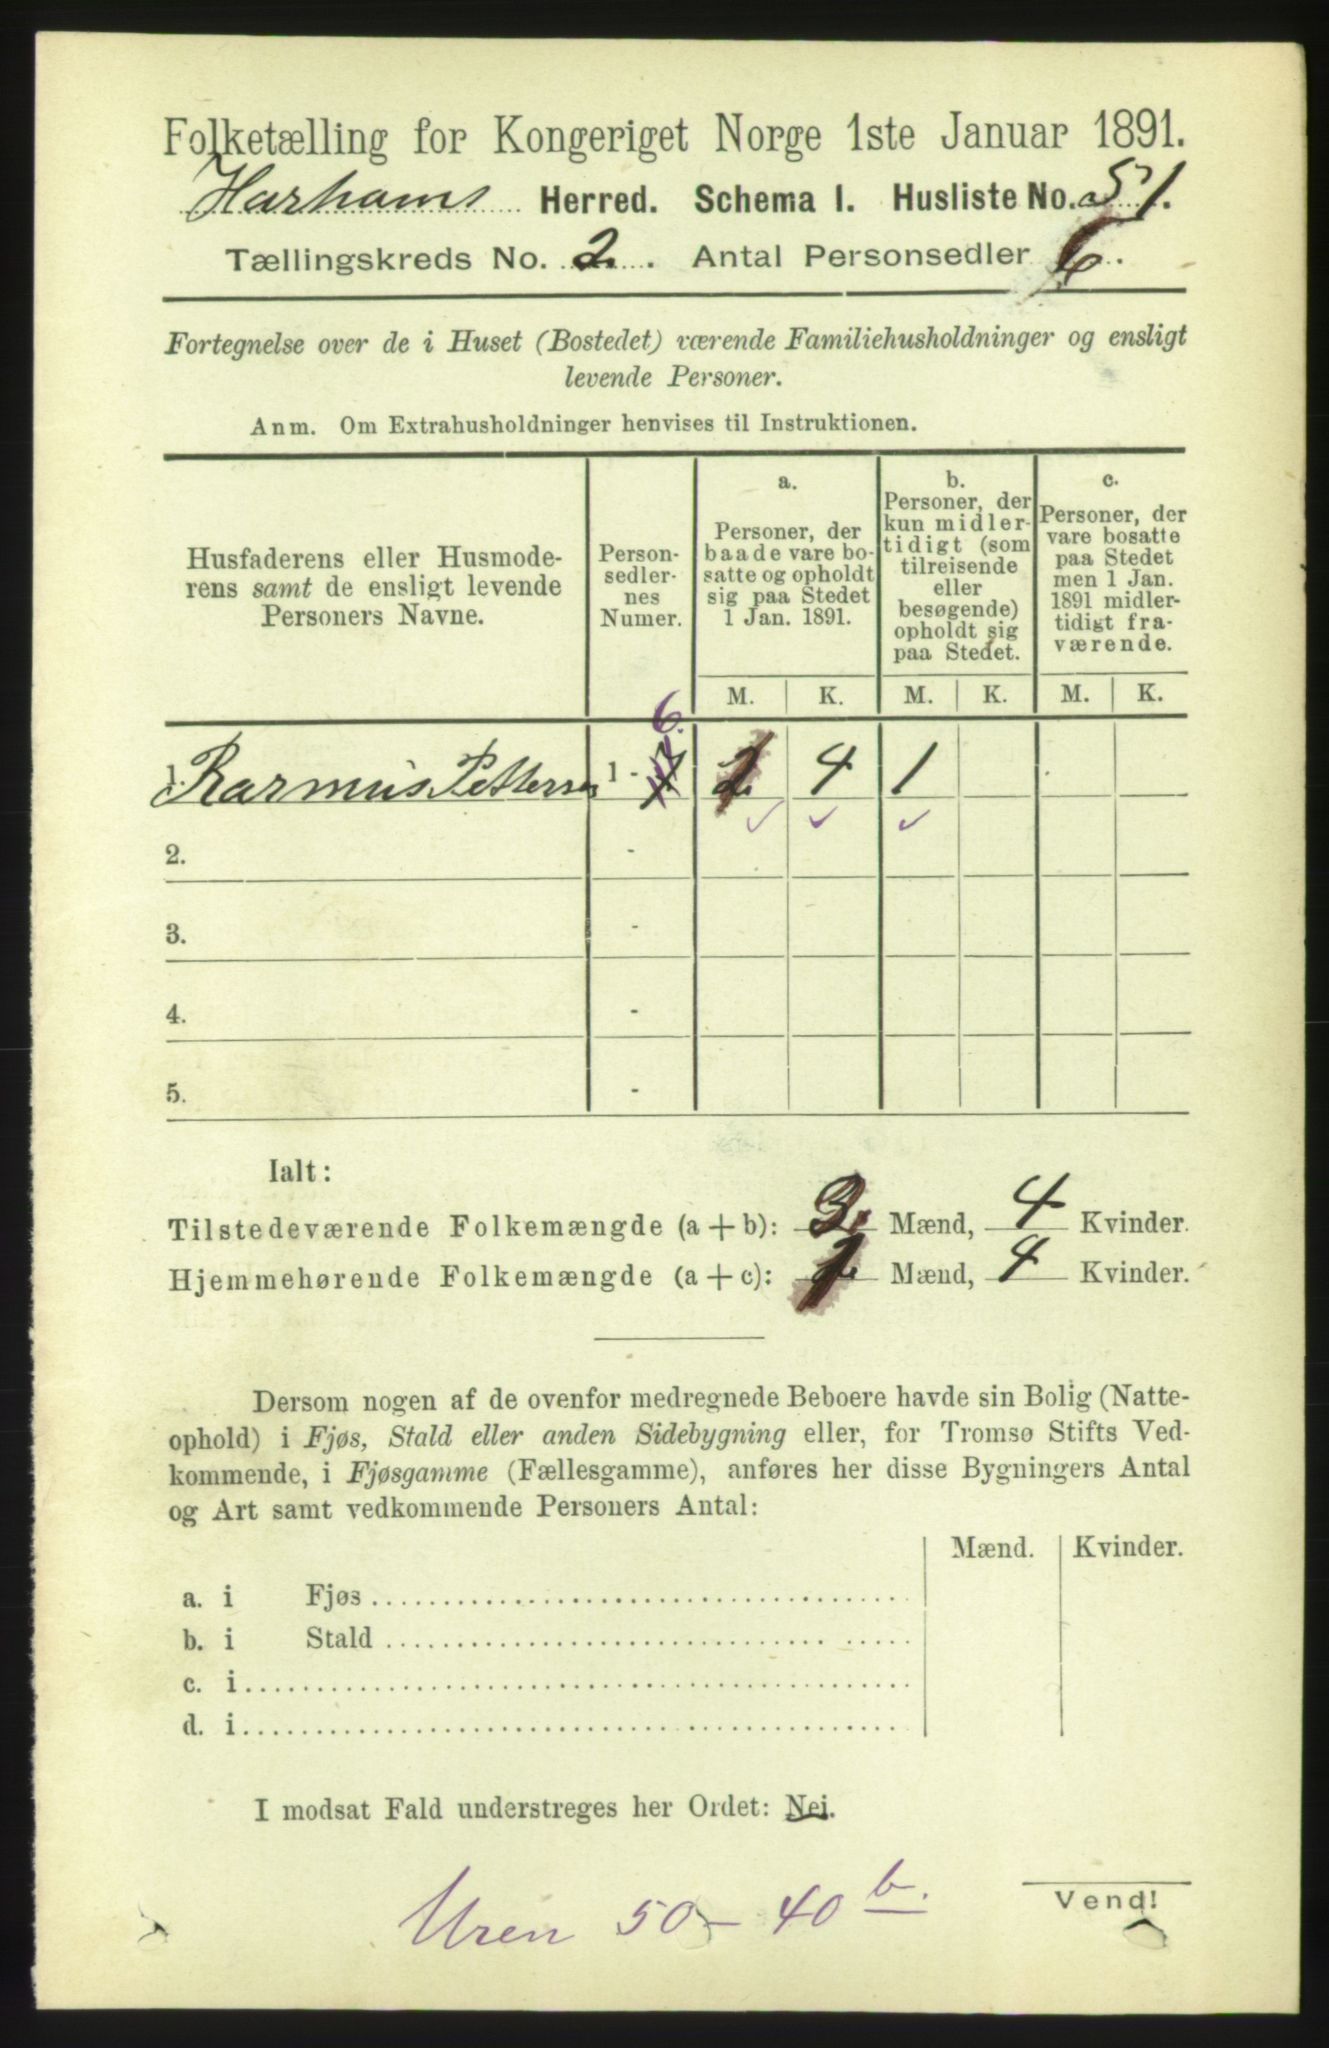 Folketælling for Kongeriget Norge 1ste Januar 1891.
Harhams Herred. Schema I. Husliste No. 51.
Tællingskreds No. 2. Antal Personsedler 6.
Fortegnelse over de i Huset (Bostedet) værende Familiehusholdninger og ensligt
levende Personer.
Anm. Om Extrahusholdninger henvises til Instruktionen.
Husfaderens eller Husmode-
rens samt de ensligt levende
Personers Navne.
Person-
sedler-
nes
Numer.
a.
Personer, der
baade vare bo-
satte og opholdt
sig paa Stedet
1 Jan. 1891.
b.
Personer, der
kun midler-
tidigt (som
tilreisende
eller
besøgende)
opholdt sig
paa Stedet.
c.
Personer, der
vare bosatte
paa Stedet
men 1 Jan.
1891 midler-
tidigt fra-
værende.
M. K. M. K. M. K.
6.
1. Rasmus Pettersen 1 - 7 4 1
2. -
3. -
4. -
5. -
Ialt:
Tilstedeværende Folkemængde (a + b): Mænd, 4 Kvinder.
Hjemmehørende Folkemængde (a + c): Mænd, 4 Kvinder.
Dersom nogen af de ovenfor medregnede Beboere havde sin Bolig (Natte-
ophold) i Fjøs, Stald eller anden Sidebygning eller, for Tromsø Stifts Ved-
kommende, i Fjøsgamme (Fællesgamme), anføres her disse Bygningers Antal
og Art samt vedkommende Personers Antal:
Mænd. Kvinder.
a. i Fjøs
b. i Stald
c. i
d. i
I modsat Fald understreges her Ordet: Nei.
Vend!
Uren 50 - 40 b.